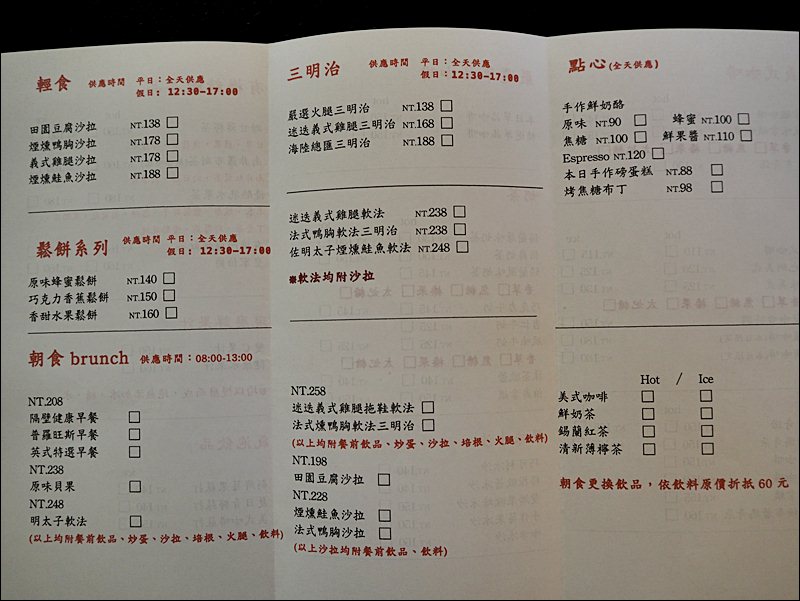 輕食 供應時間 平日：全天供應
假日: 12:30-17:00
田園豆腐沙拉 NT.138
煙燻鴨胸沙拉 NT.178
義式雞腿沙拉 NT.178
煙燻鮭魚沙拉 NT.188
鬆餅系列 供應時間 平日：全天供應
假日: 12:30-17:00
原味蜂蜜鬆餅 NT.140
巧克力香蕉鬆餅 NT.150
香甜水果鬆餅 NT.160
朝食 brunch 供應時間：08:00-13:00
NT.208
隔壁健康早餐
普羅旺斯早餐
英式特選早餐
NT.238
原味貝果
NT.248
明太子軟法
(以上均附餐前飲品、炒蛋、沙拉、培根、火腿、飲料)
三明治 供應時間 平日：全天供應
假日：12:30-17:00
嚴選火腿三明治 NT.138
迷迭義式雞腿三明治 NT.168
海陸總匯三明治 NT.188
迷迭義式雞腿軟法 NT.238
法式鴨胸軟法三明治 NT.238
佐明太子煙燻鮭魚軟法 NT.248
※軟法均附沙拉
NT.258
迷迭義式雞腿拖鞋軟法
法式燻鴨胸軟法三明治
(以上均附餐前飲品、炒蛋、沙拉、培根、火腿、飲料)
NT.198
田園豆腐沙拉
NT.228
煙燻鮭魚沙拉
法式鴨胸沙拉
(以上沙拉均附餐前飲品、飲料)
點心 (全天供應)
手作鮮奶酪
原味 NT.90 蜂蜜 NT.100
焦糖 NT.100 鮮果醬 NT.110
Espresso NT.120
本日手作磅蛋糕 NT.88
烤焦糖布丁 NT.98
Hot / Ice
美式咖啡
鮮奶茶
錫蘭紅茶
清新薄檸茶
朝食更換飲品，依飲料原價折抵 60 元